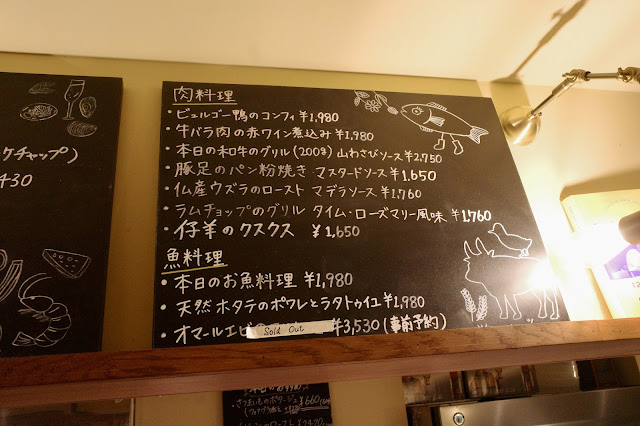 肉料理
・ビュルゴー鴨のコンフィ ¥1,980
・牛バラ肉の赤ワイン煮込み ¥1,980
・本日の和牛のグリル(200g) 山わさびソース ¥2,750
・豚足のパン粉焼き マスタードソース ¥1,650
・仏産ウズラのロースト マデラソース ¥1,760
・ラムチョップのグリル タイム・ローズマリー風味 ¥1,760
・仔羊のクスクス ¥1,650
魚料理
・本日のお魚料理 ¥1,980
・天然ホタテのポワレとラタトゥイユ ¥1,980
・オマールエビ Sold Out ¥3,530 (事前予約)
ケチャップ)
430
さつまいものポタージュ ¥660